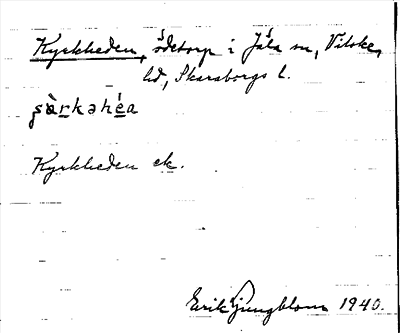 Kyrkheden, ödetorp i Jäla sn, Vilske
hd, Skaraborgs l.
Kyrkheden ek.
Erik Ljungblom 1940.